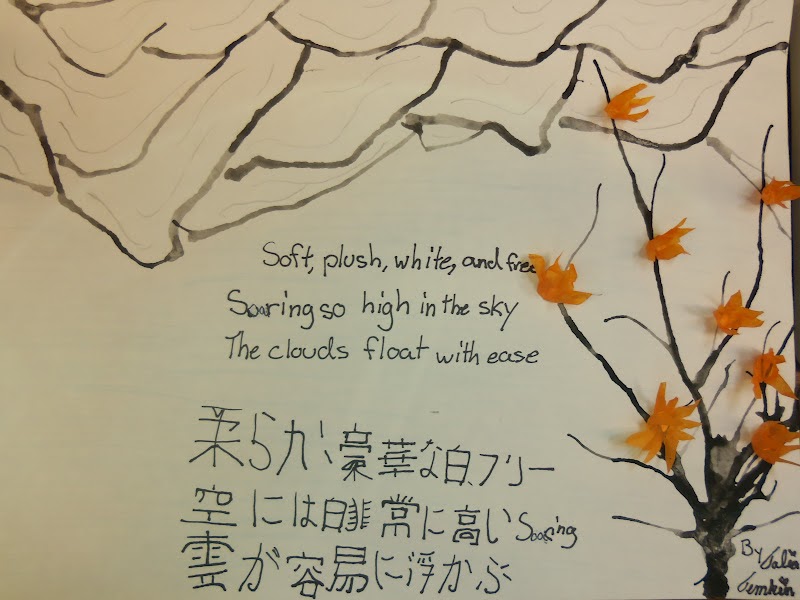 Soft, plush, white, and free
Soaring so high in the sky
The clouds float with ease
柔らか、豪華な白、フリー
空には非常に高いSoaring
雲が容易に浮かぶ
By Talia
Temkin